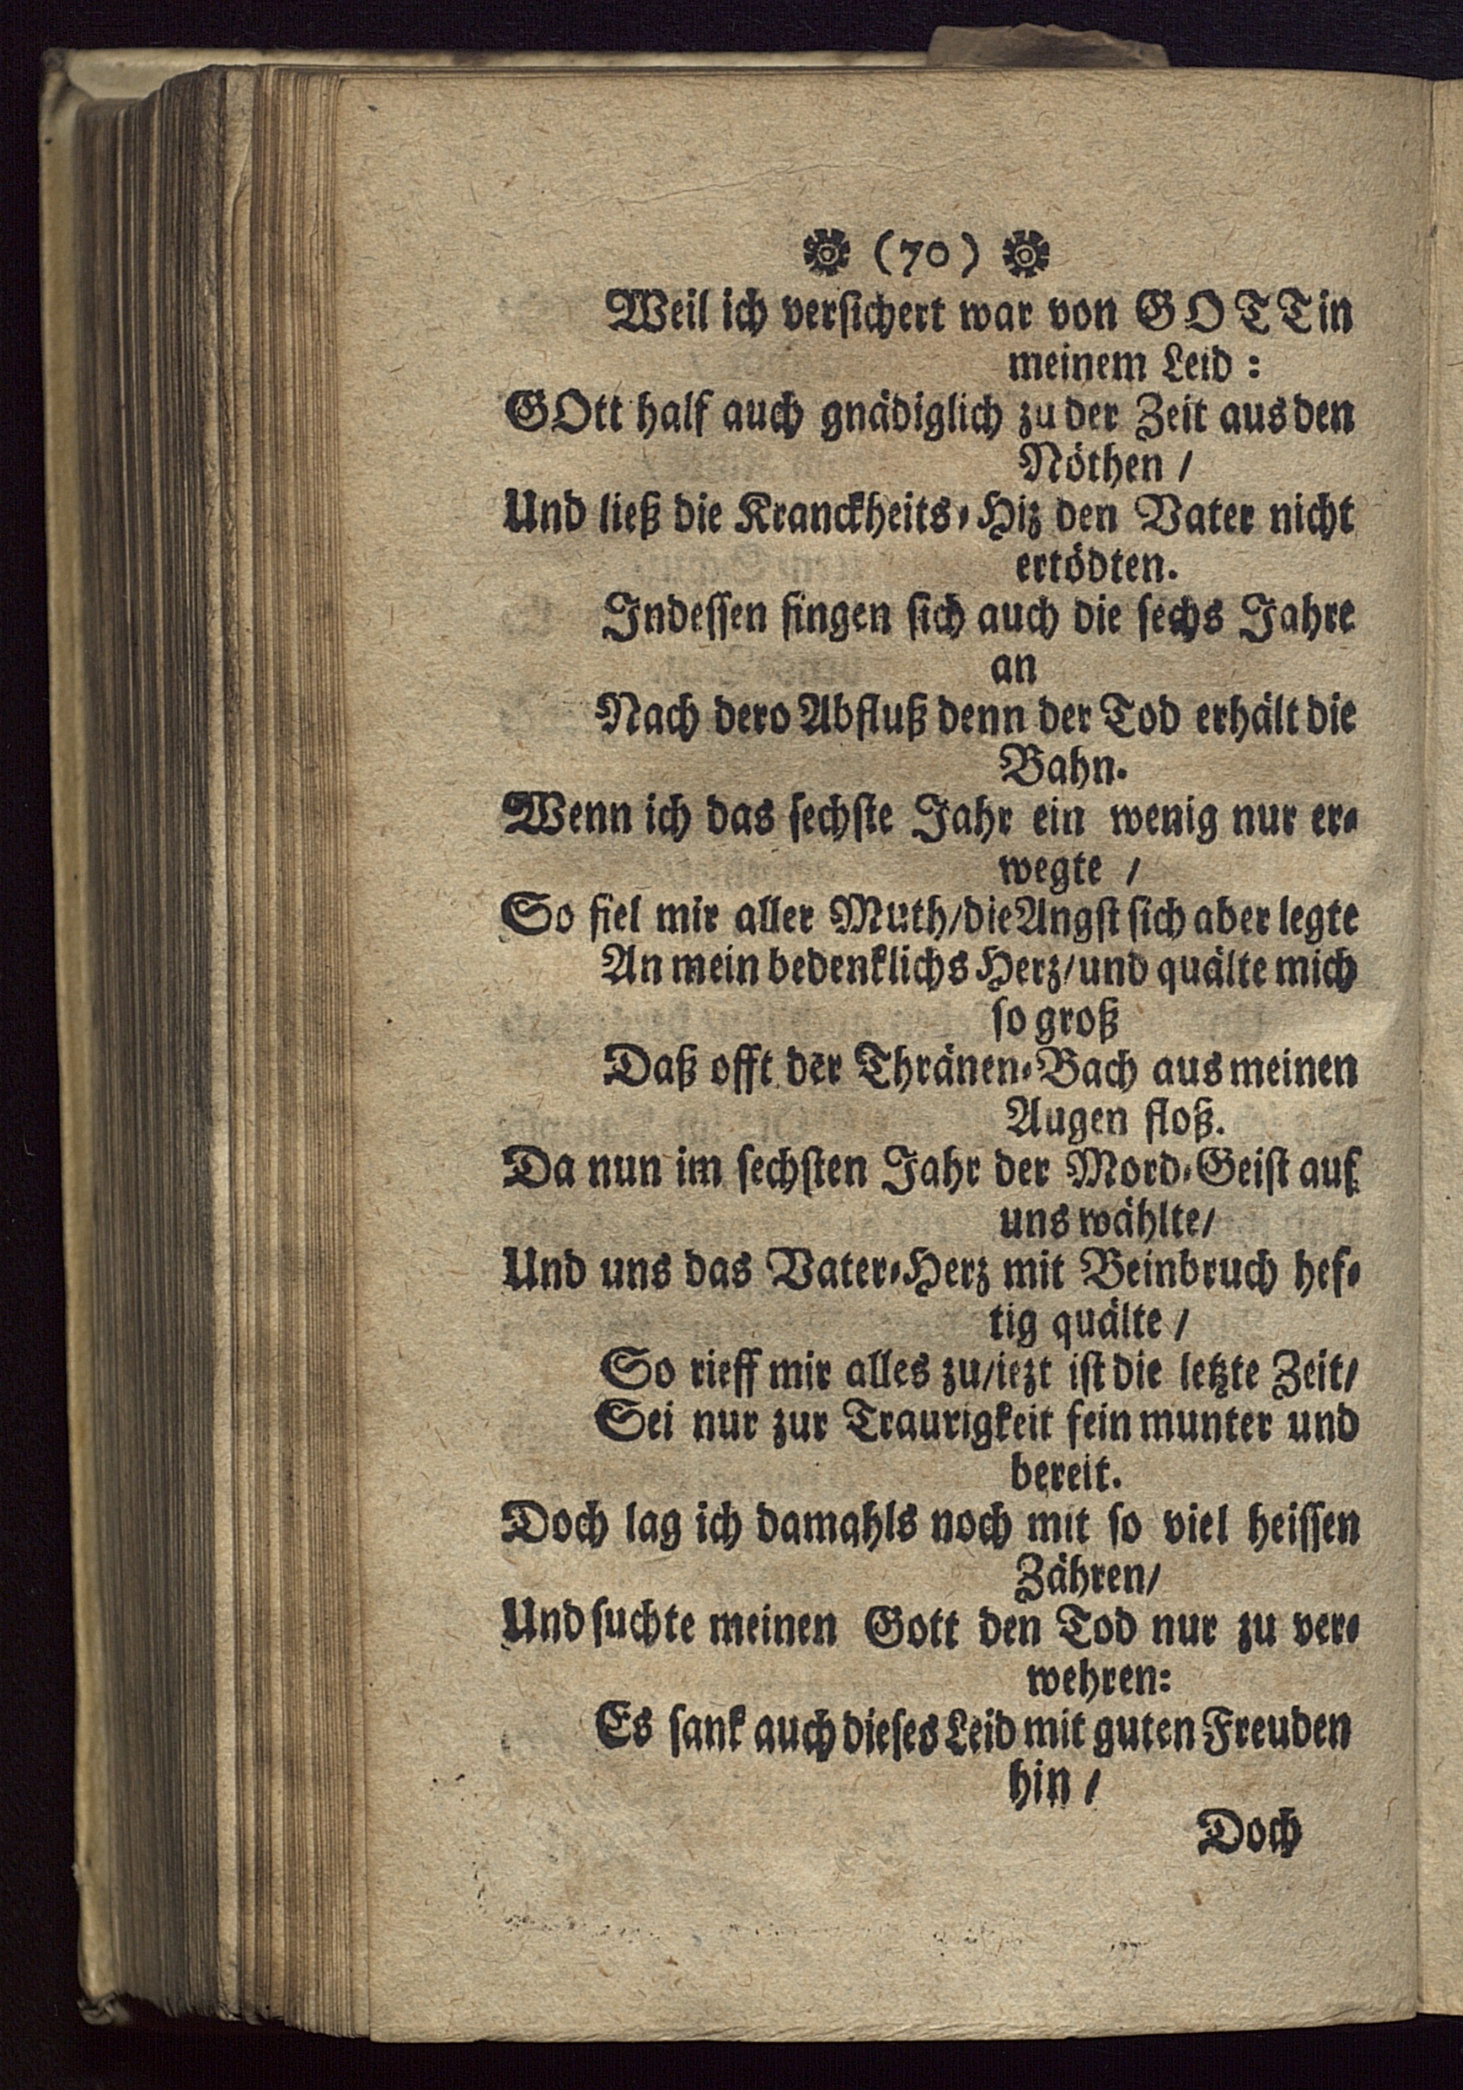 ❁ (70) ❁
Weil ich versichert war von GOTT in
meinem Leid:
GOtt half auch gnädiglich zu der Zeit aus den
Nöthen /
Und ließ die Kranckheits-Hiz den Vater nicht
ertödten.
Indessen fingen sich auch die sechs Jahre
an
Nach dero Abfluß denn der Tod erhält die
Bahn.
Wenn ich das sechste Jahr ein wenig nur er-
wegte /
So fiel mir aller Muth/die Angst sich aber legte
An mein bedenklichs Herz/und quälte mich
so groß
Daß offt der Thränen-Bach aus meinen
Augen floß.
Da nun im sechsten Jahr der Mord-Geist auf
uns wählte/
Und uns das Vater-Herz mit Beinbruch hef-
tig quälte /
So rieff mir alles zu/iezt ist die letzte Zeit/
Sei nur zur Traurigkeit fein munter und
bereit.
Doch lag ich damahls noch mit so viel heissen
Zähren/
Und suchte meinen Gott den Tod nur zu ver-
wehren:
Es sank auch dieses Leid mit guten Freuden
hin /
Doch